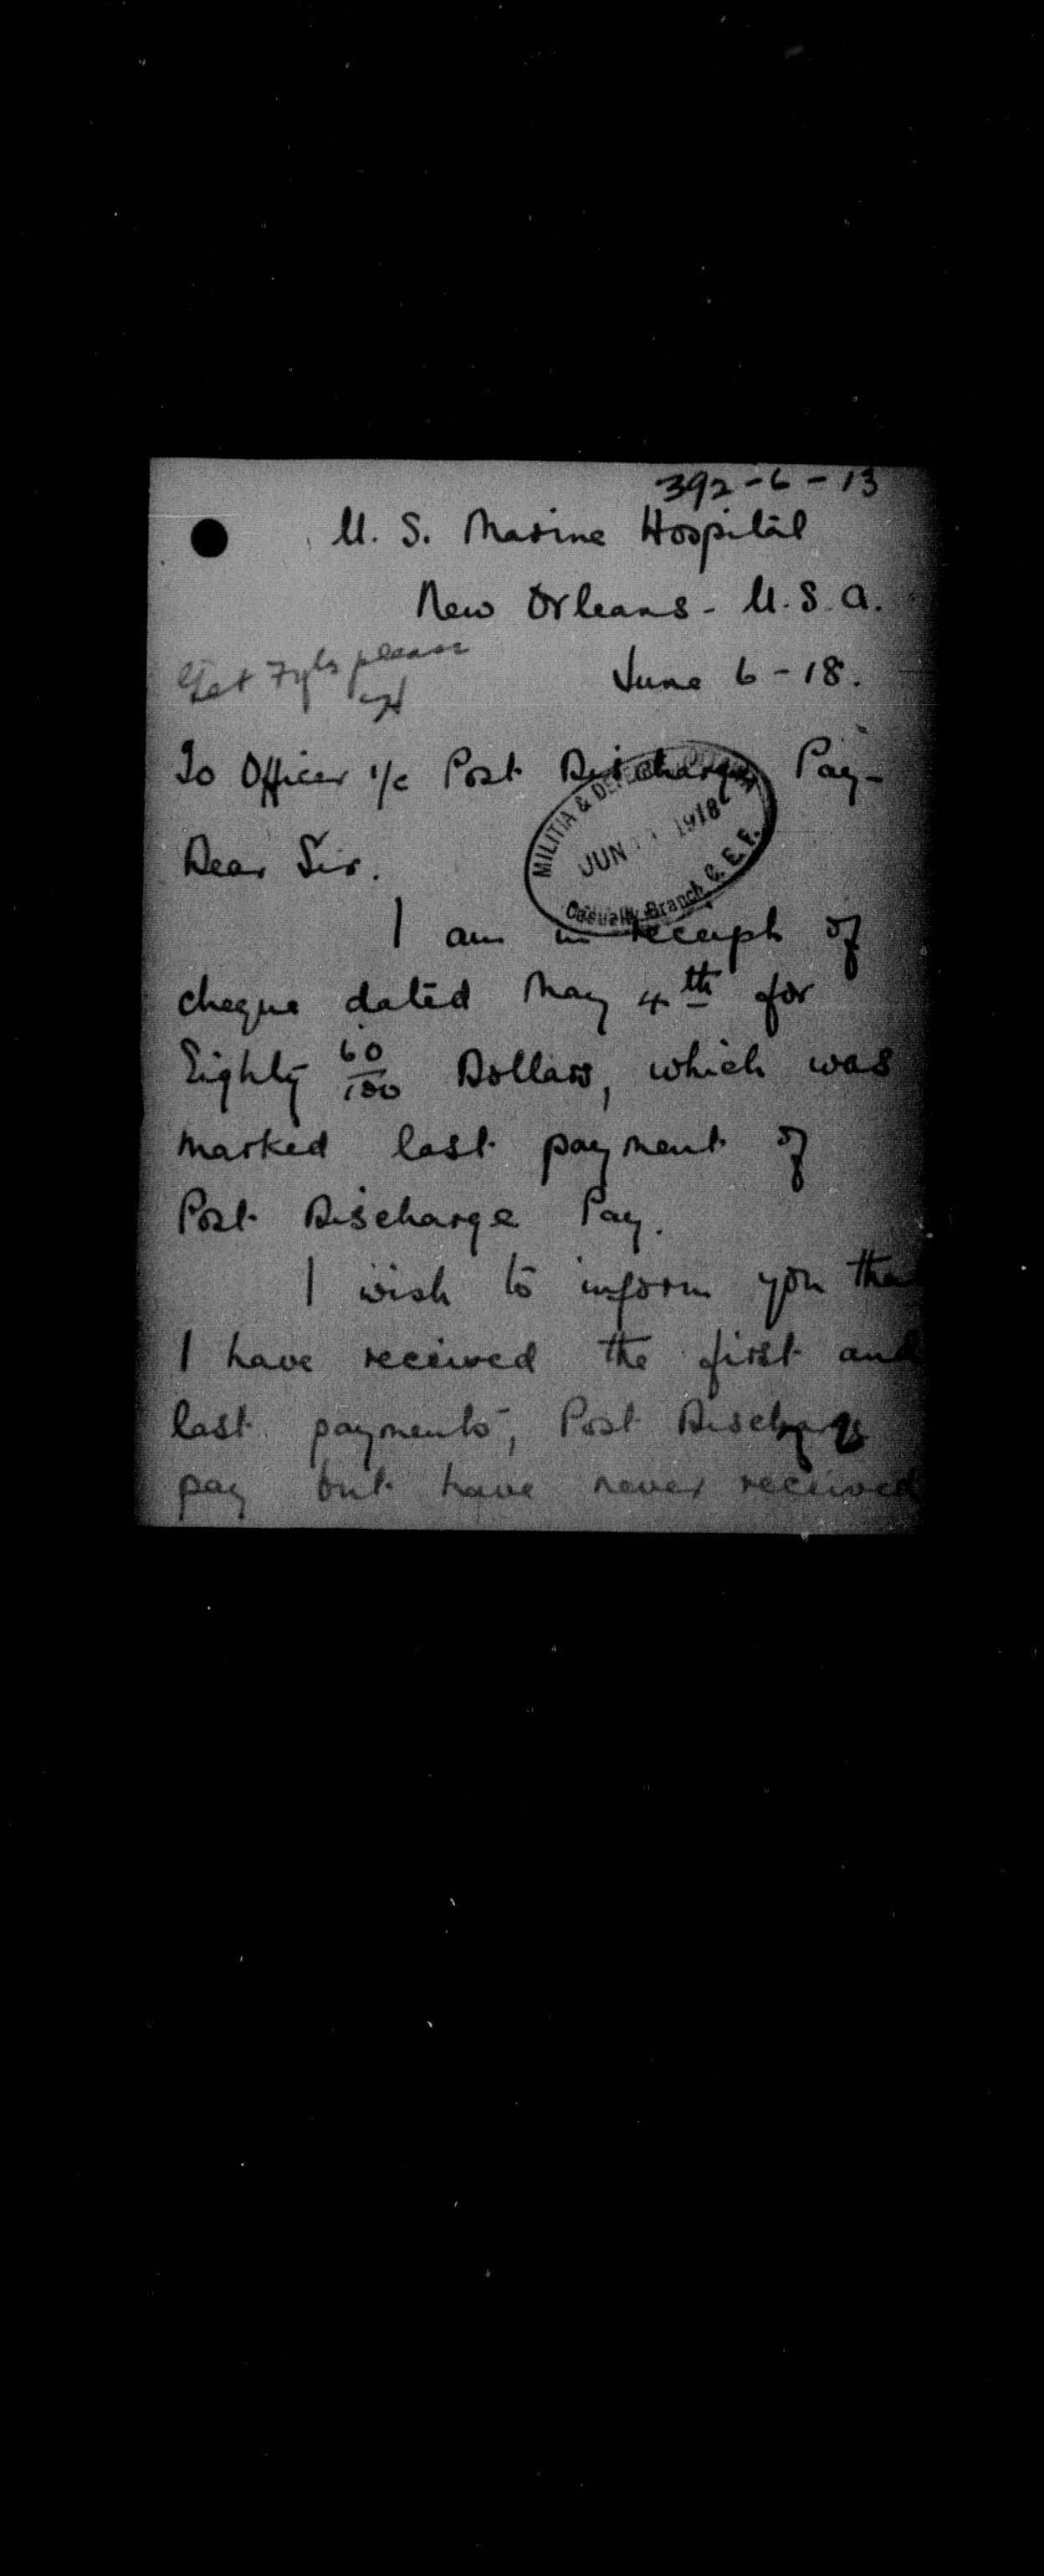 392-6-13
U. S. Marine Hospital
New Orleans - U.S.A.
Get Fyls please
June 6-18.
To Officer i/c Post Discharge Pay-
MILITIA & DEFENCE OTTAWA
JUN 1918
Casualty Branch C.E.F.
Dear Sir.
I am in receipt of
cheque dated May 4th for
Eighty 60/100 Dollars, which was
marked last payment of
Post Discharge Pay.
I wish to inform you tha
I have received the first and
last payments, Post Discharge
pay but have never received